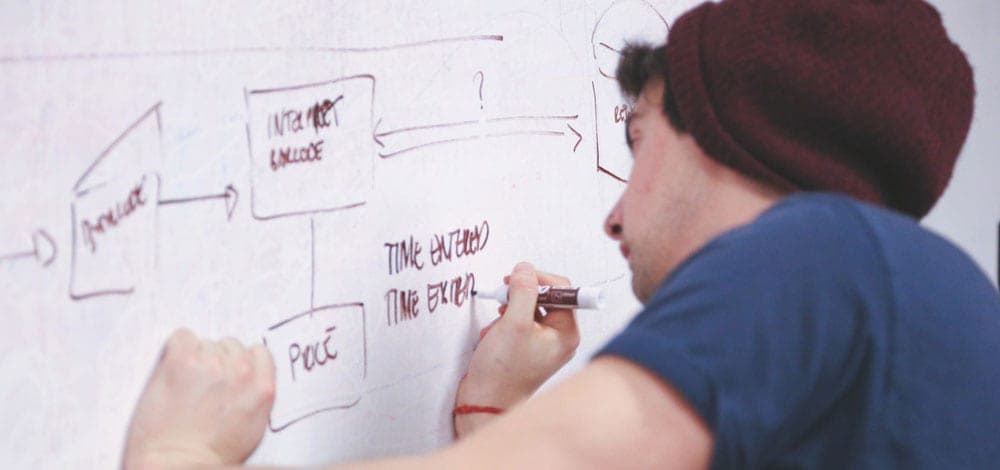 ?
INTERPRET
BARCODE
TIME ENTERED
TIME
PRICE